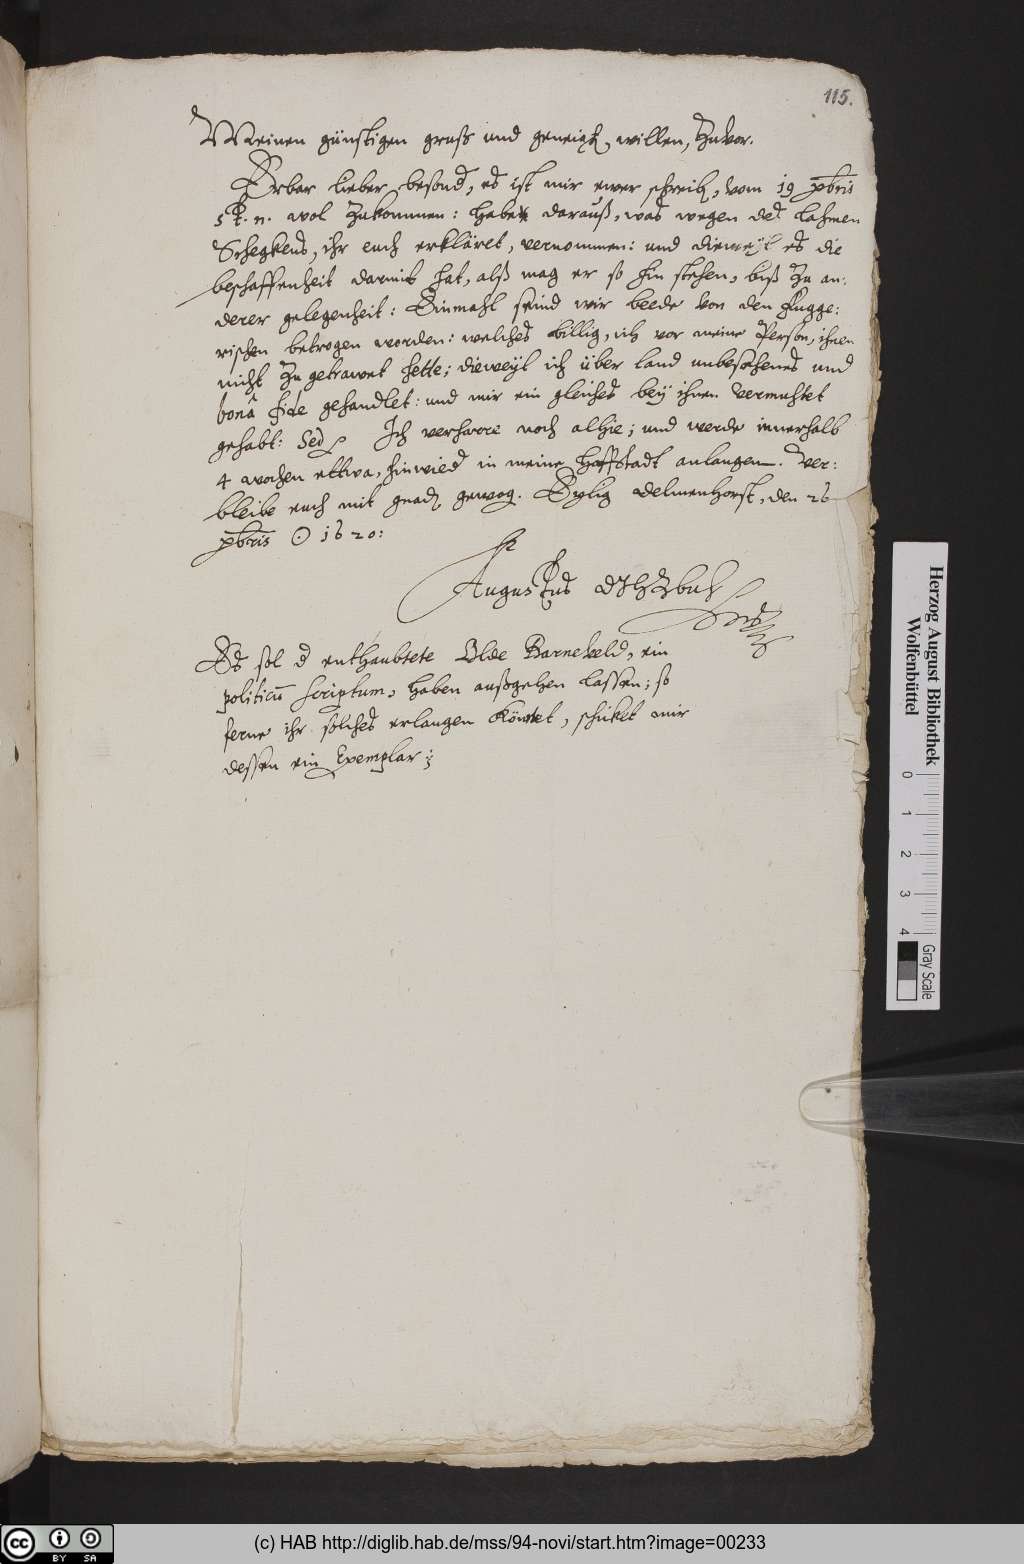 115.
Meinen günstigen gruß und geneigt, willen, zuvor.
Erbar lieber besond, es ist mir ewer schreib, vom 19 Xbris
st. n. wol zukommen: habe darauß, was wegen des lahmen
Schegkens, ihr euch erkläret, vernommen: und dieweyl es die
beschaffenheit damit hat, alß mag er so hin stehen, biß zu an:
derer gelegenheit: Einmahl seind wir beede von den Fugge:
rischen betrogen worden: welches billig, ich vor meine Person, ihnen
nicht zu getrawet hette; dieweyl ich über land unbesehenes und
bonâ fide gehandlet: und mir ein gleiches bey ihnen vermuhtet
gehabt: Sed Ich verharre noch alhie; und werde innerhalb
4 wochen ettwa, hinwied in meine Hoffstadt anlangen. Ver:
bleibe euch mit gnad, gewog. Eylig Delmenhorst, den 26
Xbris ☉ 1620:
Augustus
Es sol d enthaubtete Olde Barneveld, ein
politicū scriptum, haben außgehen lassen; so
ferne ihr solches erlangen köntet, schicket mir
dessen ein Exemplar:
Herzog August Bibliothek
Wolfenbüttel
0 1 2 3 4
Gray Scale
cc BY SA
(c) HAB http://diglib.hab.de/mss/94-novi/start.htm?image=00233